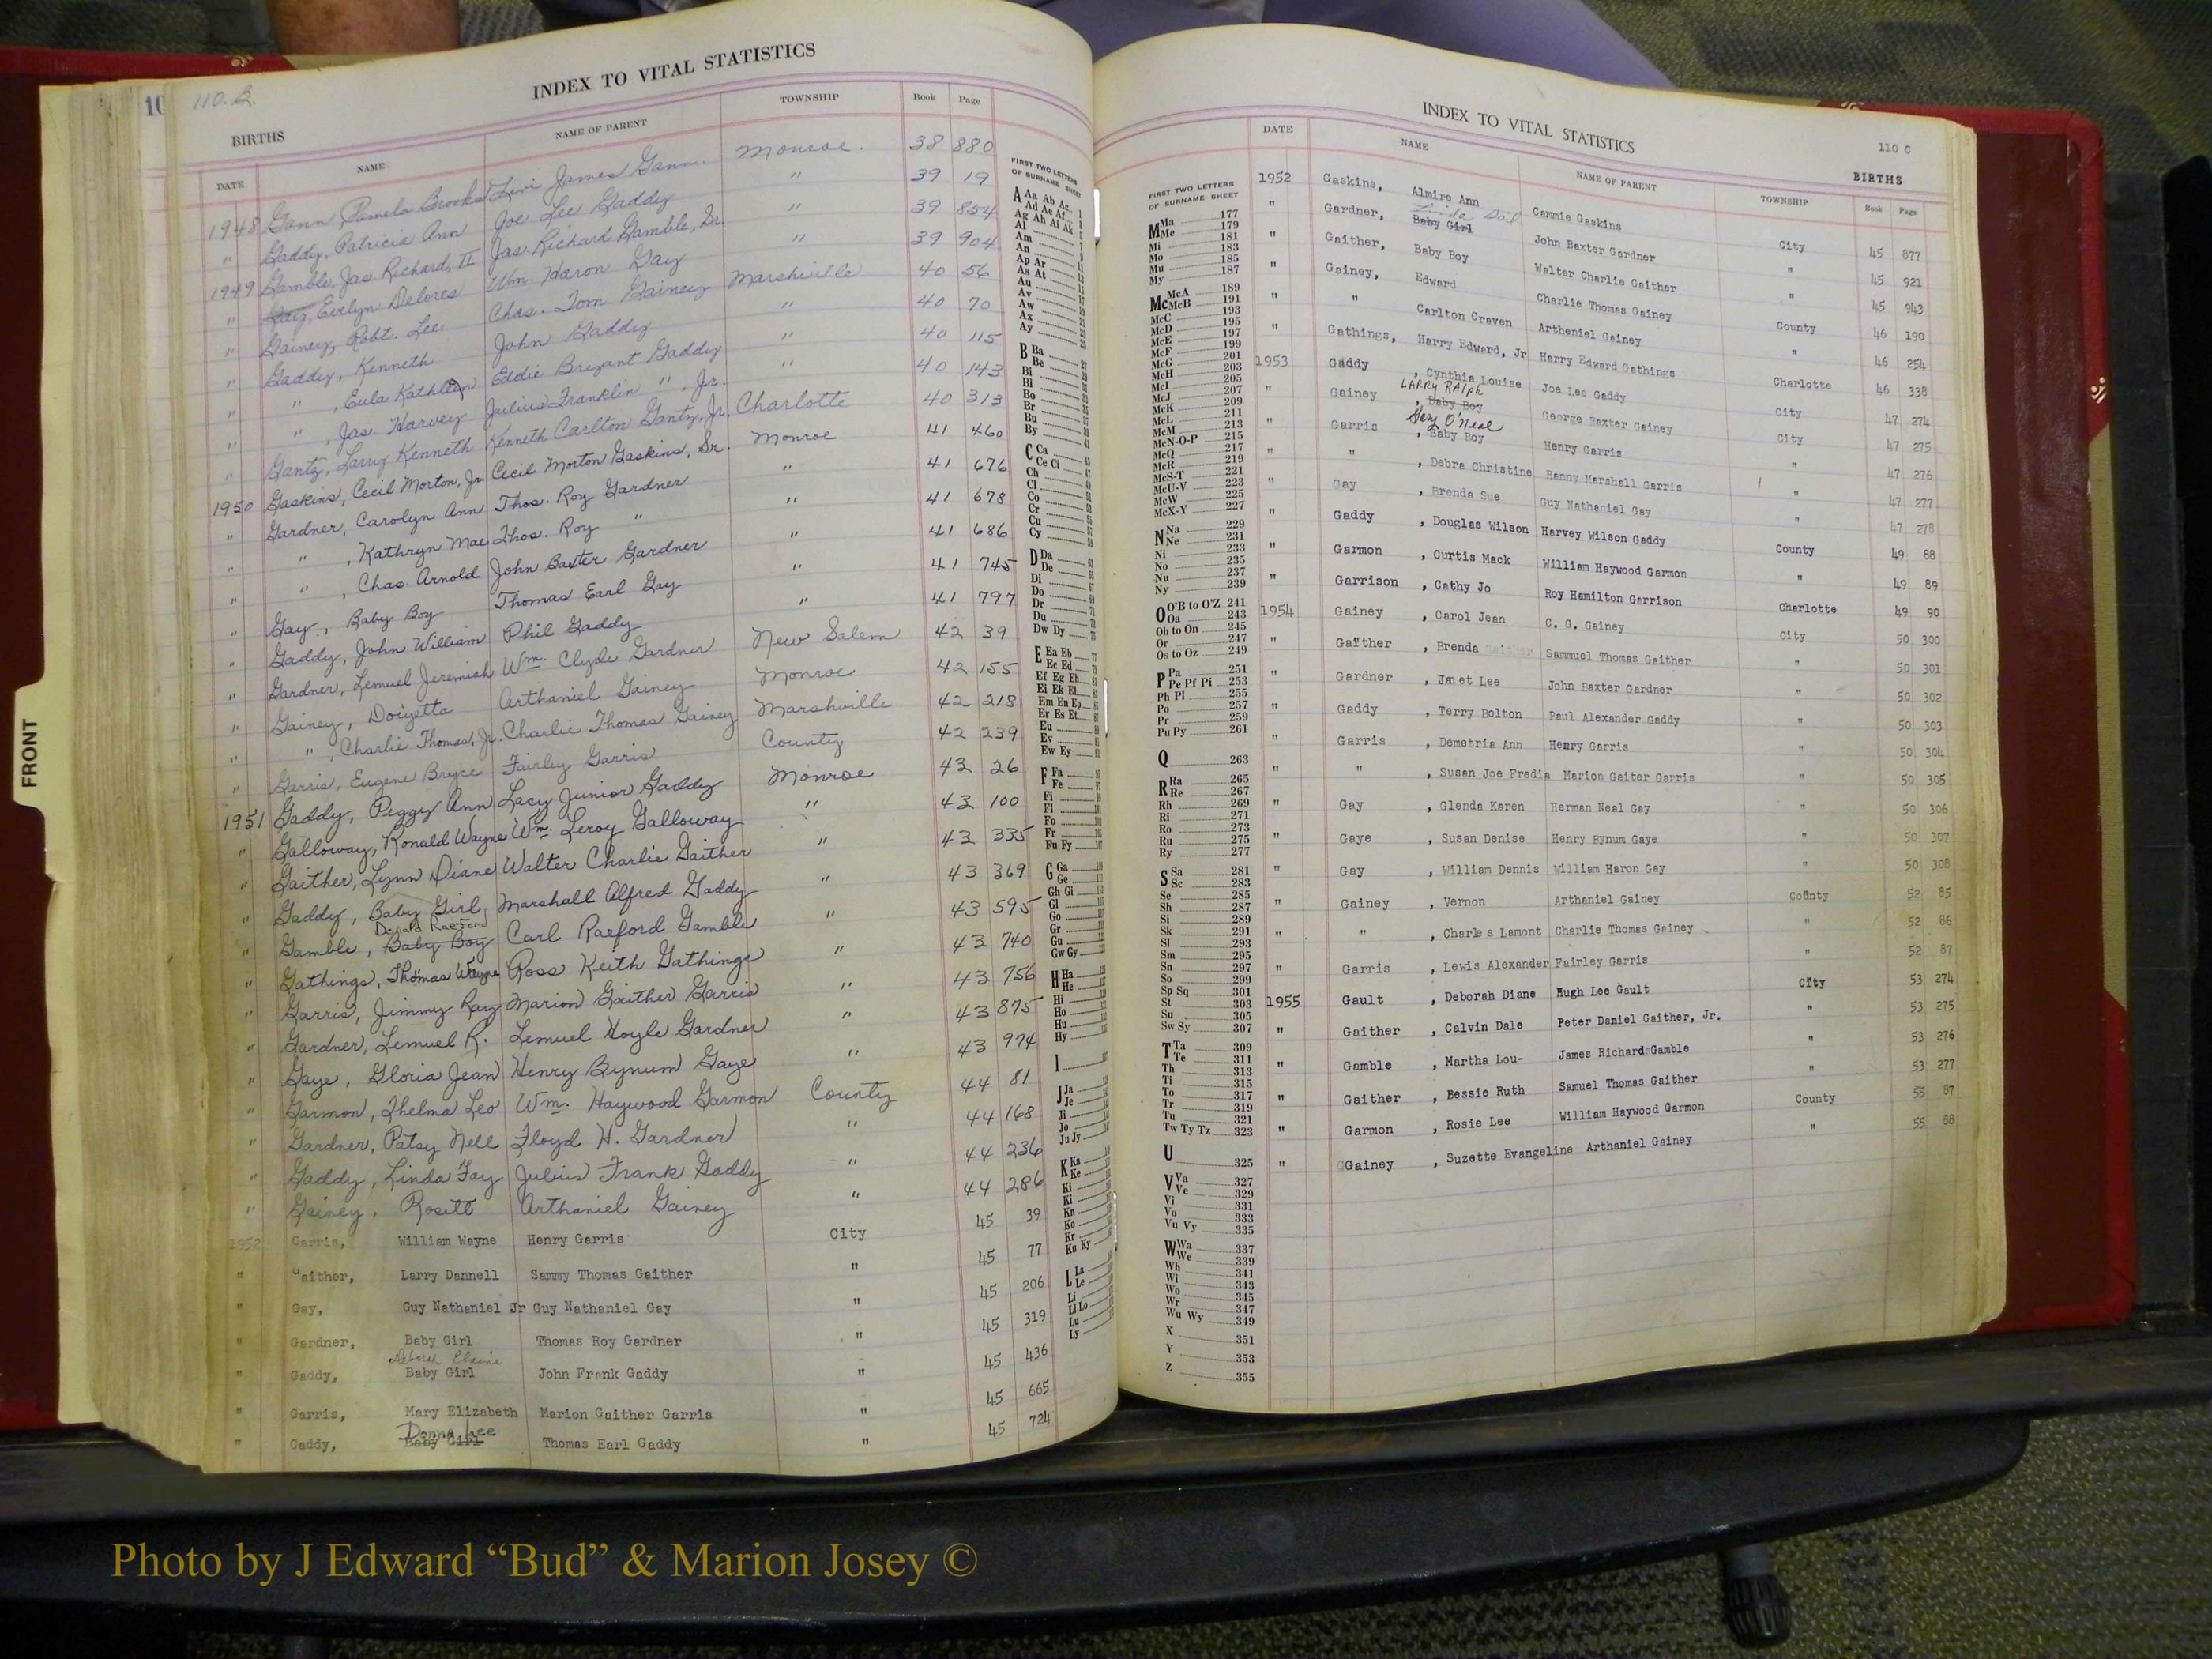 FRONT
10
110. B.
INDEX TO VITAL STATISTICS
BIRTHS
DATE NAME NAME OF PARENT TOWNSHIP Book Page
1948 Gann Pamela Brooks Levi James Gann. Monroe. 38 880
" Gaddy, Patricia Ann Joe Lee Gaddy " 39 19
1949 Gamble, Jas. Richard, II Jas. Richard Gamble, Sr. " 39 854
" Gay, Evelyn Delores Wm. Haron Gay " 39 904
" Gainey, Robt. Lee Chas. Tom Gainey Marshville 40 56
" Gaddy, Kenneth John Gaddy " 40 70
" " , Eula Kathleen Eddie Bryant Gaddy " 40 115
" " , Jas. Harvey Julius Franklin " , Jr. " 40 143
" Gantz, Larry Kenneth Kenneth Carlton Gantz, Jr. Charlotte 40 313
1950 Gaskins, Cecil Morton, Jr. Cecil Morton Gaskins, Sr. Monroe 41 460
" Gardner, Carolyn Ann Thos. Roy Gardner " 41 676
" " , Kathryn Mae Thos. Roy " " 41 678
" " , Chas. Arnold John Baxter Gardner " 41 686
" Gay, Baby Boy Thomas Earl Gay " 41 745
" Gaddy, John William Phil Gaddy " 41 797
" Gardner, Lemuel Jeremiah Wm. Clyde Gardner New Salem 42 39
" Gainey, Arthaniel Gainey Monroe 42 155
" " , Charlie Thomas, Jr. Charlie Thomas Gainey Marshville 42 218
" Garris, Eugene Bryce Fairley Garris County 42 239
1951 Gaddy, Peggy Ann Lacy Junior Gaddy Monroe 43 26
" Galloway, Ronald Wayne Wm. Leroy Galloway " 43 100
" Gaither, Lynn Diane Walter Charlie Gaither " 43 335
" Gaddy, Baby Girl Marshall Alfred Gaddy " 43 369
Donald Raeford
" Gamble, Baby Boy Carl Raeford Gamble " 43 595
" Gathings, Thomas Wayne Ross Keith Gathings " 43 740
" Garris, Jimmy Ray Marion Gaither Garris " 43 756
" Gardner, Lemuel R. Lemuel Hoyle Gardner " 43 875
" Gaye, Gloria Jean Henry Bynum Gaye " 43 974
" Garmon, Thelma Leo Wm. Haywood Garmon County 44 81
" Gardner, Patsy Nell Floyd H. Gardner " 44 168
" Gaddy, Linda Fay Julius Frank Gaddy " 44 236
" Gainey, Rosett Arthaniel Gainey " 44 286
1952 Garris, William Wayne Henry Garris City 45 39
" Gaither, Larry Dannell Sammy Thomas Gaither " 45 77
" Gay, Guy Nathaniel Jr Guy Nathaniel Gay " 45 206
" Gardner, Baby Girl Thomas Roy Gardner " 45 319
Deborah Elaine
" Gaddy, Baby Girl John Frank Gaddy " 45 436
" Garris, Mary Elizabeth Marion Gaither Garris " 45 665
Donna Lee
" Gaddy, Baby Girl Thomas Earl Gaddy " 45 724
FIRST TWO LETTERS
OF SURNAME SHEET
A Aa Ab Ac
Ad Ae Af
Ag Ah Ai Ak
Al
Am
An
Ap Ar
As At
Au
Av
Aw
Ax
Ay
B Ba
Be
Bi
Bl
Bo
Br
Bu
By
C Ca
Ce Ci
Ch
Cl
Co
Cr
Cu
Cy
D Da
De
Di
Do
Dr
Du
Dw Dy
E Ea Eb
Ec Ed
Ef Eg Eh
Ei Ek El
Em En Ep
Er Es Et
Eu
Ev
Ew Ey
F Fa
Fe
Fi
Fl
Fo
Fr
Fu Fy
G Ga
Ge
Gh Gi
Gl
Go
Gr
Gu
Gw Gy
H Ha
He
Hi
Ho
Hu
Hy
I
J Ja
Je
Ji
Jo
Ju Jy
K Ka
Ke
Ki
Kl
Kn
Ko
Kr
Ku Ky
L La
Le
Li
Ll Lo
Lu
Ly
INDEX TO VITAL STATISTICS
110 C
BIRTHS
FIRST TWO LETTERS
OF SURNAME SHEET
M Ma 177
Me 179
Mi 181
Mo 183
Mu 185
My 187
Mc McA 189
McB 191
McC 193
McD 195
McE 197
McF 199
McG 201
McH 203
McI 205
McJ 207
McK 209
McL 211
McM 213
McN-O-P 215
McQ 217
McR 219
McS-T 221
McU-V 223
McW 225
McX-Y 227
N Na 229
Ne 231
Ni 233
No 235
Nu 237
Ny 239
O O'B to O'Z 241
Oa 243
Ob to On 245
Or 247
Os to Oz 249
P Pa 251
Pe Pf Pi 253
Ph Pl 255
Po 257
Pr 259
Pu Py 261
Q 263
R Ra 265
Re 267
Rh 269
Ri 271
Ro 273
Ru 275
Ry 277
S Sa 281
Sc 283
Se 285
Sh 287
Si 289
Sk 291
Sl 293
Sm 295
Sn 297
So 299
Sp Sq 301
St 303
Su 305
Sw Sy 307
T Ta 309
Te 311
Th 313
Ti 315
To 317
Tr 319
Tu 321
Tw Ty Tz 323
U 325
V Va 327
Ve 329
Vi 331
Vo 333
Vu Vy 335
W Wa 337
We 339
Wh 341
Wi 343
Wo 345
Wr 347
Wu Wy 349
X 351
Y 353
Z 355
DATE NAME NAME OF PARENT TOWNSHIP Book Page
1952 Gaskins, Almire Ann Cammie Gaskins City 45 877
Linda Gail
" Gardner, Baby Girl John Baxter Gardner " 45 921
" Gaither, Baby Boy Walter Charlie Gaither " 45 943
" Gainey, Edward Charlie Thomas Gainey County 46 190
" " Carlton Craven Artheniel Gainey " 46 254
" Gathings, Harry Edward, Jr Harry Edward Gathings Charlotte 46 338
1953 Gaddy , Cynthia Louise Joe Lee Gaddy City 47 274
LARRY RALph
" Gainey , Baby Boy George Baxter Gainey City 47 275
Gary O'Neal
" Garris , Baby Boy Henry Garris " 47 276
" " , Debra Christine Hanny Marshall Garris " 47 277
" Gay , Brenda Sue Guy Nathaniel Gay " 47 278
" Gaddy , Douglas Wilson Harvey Wilson Gaddy County 49 88
" Garmon , Curtis Mack William Haywood Garmon " 49 89
" Garrison , Cathy Jo Roy Hamilton Garrison Charlotte 49 90
1954 Gainey , Carol Jean C. G. Gainey City 50 300
" Gaither , Brenda Sammuel Thomas Gaither " 50 301
" Gardner , Janet Lee John Baxter Gardner " 50 302
" Gaddy , Terry Bolton Paul Alexander Gaddy " 50 303
" Garris , Demetria Ann Henry Garris " 50 304
" " , Susan Joe Fredia Marion Gaiter Garris " 50 305
" Gay , Glenda Karen Herman Neal Gay " 50 306
" Gaye , Susan Denise Henry Bynum Gaye " 50 307
" Gay , William Dennis William Haron Gay " 50 308
" Gainey , Vernon Arthaniel Gainey County 52 85
" " , Charles Lamont Charlie Thomas Gainey " 52 86
" Garris , Lewis Alexander Fairley Garris " 52 87
1955 Gault , Deborah Diane Hugh Lee Gault City 53 274
" Gaither , Calvin Dale Peter Daniel Gaither, Jr. " 53 275
" Gamble , Martha Lou- James Richard Gamble " 53 276
" Gaither , Bessie Ruth Samuel Thomas Gaither " 53 277
" Garmon , Rosie Lee William Haywood Garmon County 55 87
" Gainey , Suzette Evangeline Arthaniel Gainey " 55 88
Photo by J Edward “Bud” & Marion Josey ©